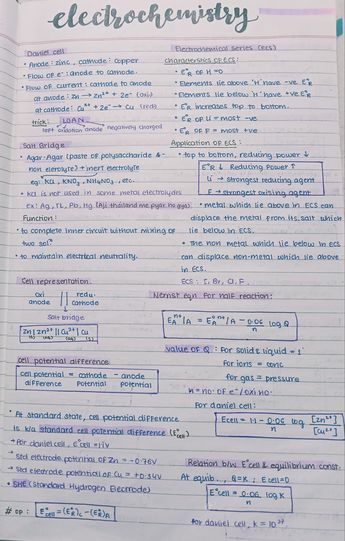 electrochemistry
Daniel cell
• Anode: zinc, cathode: copper
• Flow of e⁻: anode to cathode.
• Flow of current: cathode to anode
at anode: Zn → Zn²⁺ + 2e⁻ (oxi)
at cathode: Cu²⁺ + 2e⁻ → Cu (red)
trick: LOAN
left oxidation anode negatively charged
Salt Bridge
• Agar-Agar (paste of polysaccharide &
non elerolyte) + inert electrolyte
eg: KCl, KNO₃, NH₄NO₃, etc.
• KCl is not used in some metal electrolydes
Ex: Ag, Tl, Pb, Hg (Aji thailand me pyar ho gya)
Function:
• to complete inner circuit without mixing of
two sol⁰
• to maintain electrical neutrality.
Cell representation.
oxi || redu.
anode cathode
Salt bridge
Zn | Zn²⁺ || Cu²⁺ | Cu
(s) (aq) (aq) (s)
cell potential difference
cell potential = cathode - anode
difference Potential potential
• At standard state, cell potential difference
is k/a standard cell potential difference (E°cell)
→ For daniel cell, E°cell = 1.1V
→ Std electrode potential of Zn = -0.76V
→ Std electrode potential of Cu = +0.34V
• SHE (Standard Hydrogen Electrode)
# op: E°cell = (E°R)c - (E°R)A
Electrochemical Series (ECS)
Characteristics of ECS:
• E°R of H = 0
• Elements lie above 'H' have -ve E°R
• Elements lie below 'H' have +ve E°R
• E°R increases top to bottom.
• E°R of Li = most -ve
• E°R of F = most +ve
Application of ECS:
• top to bottom, reducing power ↓
E°R ↓ Reducing Power ↑
Li → strongest reducing agent
F → strongest oxising agent
• metal which lie above in ECS can
displace the metal from its salt which
lie below in ECS.
• The non metal which lie below in ECS
can displace non-metal which lie above
in ECS.
ECS: I, Br, Cl, F.
Nernst eqn for half reaction:
E Aⁿ⁺/A = E° Aⁿ⁺/A - 0.06/n log Q
Value of Q: For solid & liquid = 1
for ions = conc
for gas = pressure
n = no. of e⁻/oxi no.
For daniel cell:
Ecell = 1.1 - 0.06/n log [Zn²⁺]/[Cu²⁺]
Relation b/w E°cell & equilibrium const.
At equib., Q = K; Ecell = 0
E°cell = 0.06/n log K
for daniel cell, K = 10³⁷